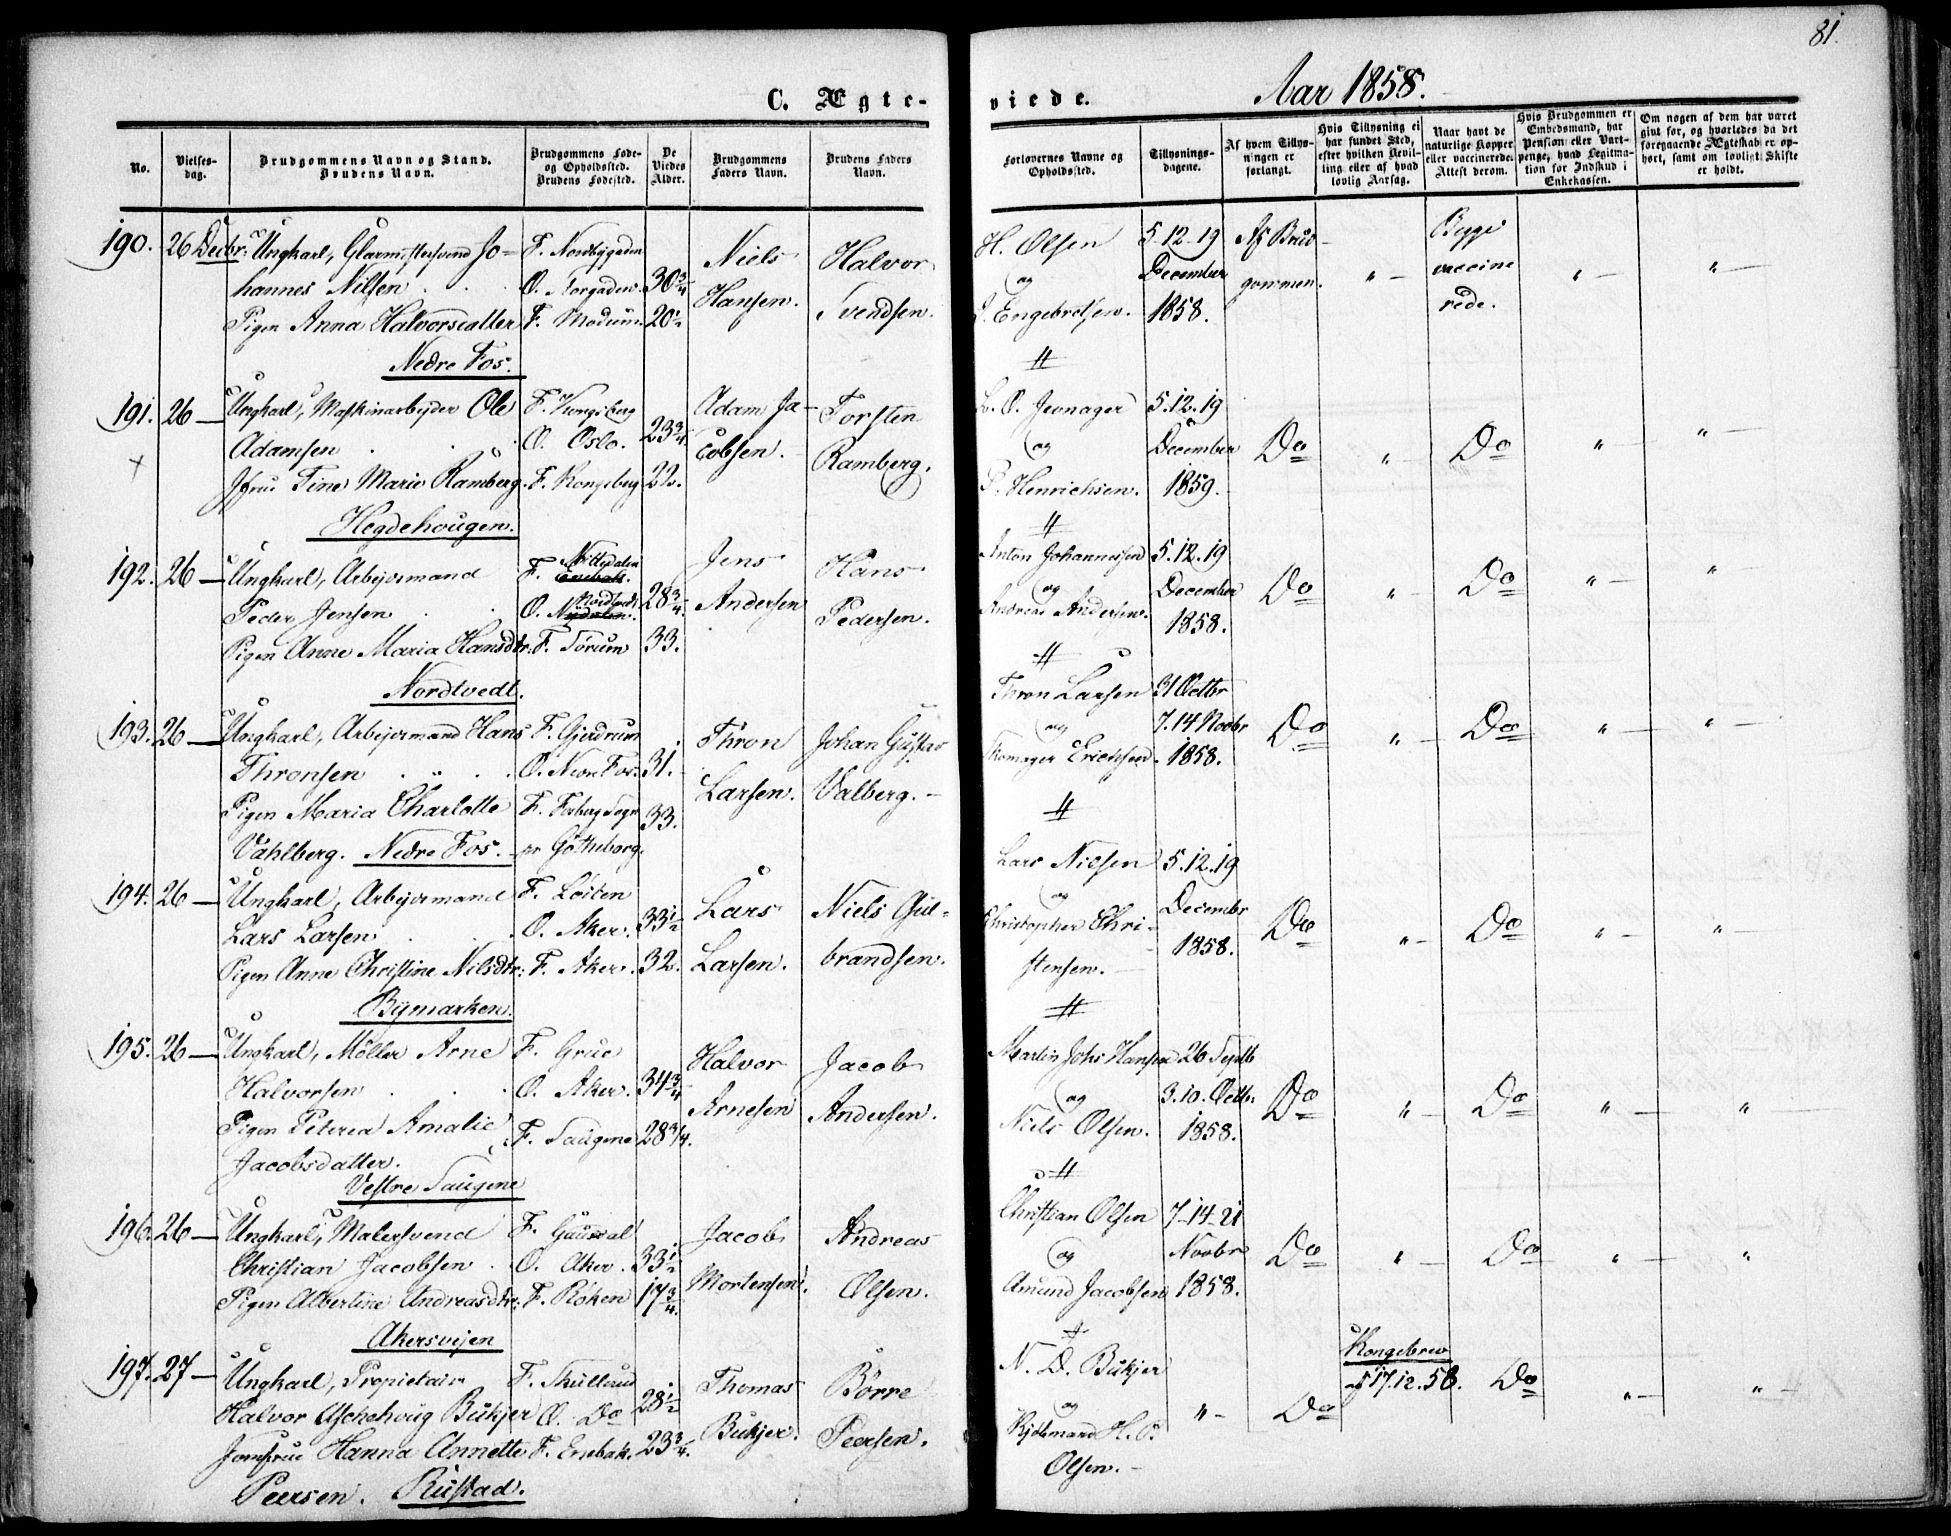 81.
C. Ægte-
viede.
Aar 1858.
No.
Vielses-
dag.
Brudgommens Navn og Stand.
Brudens Navn.
Brudgommens Føde-
og Opholdssted.
Brudens Fødested.
De
Viedes
Alder.
Brudgommens
Faders Navn.
Brudens Faders
Navn.
Forlovernes Navne og
Opholdssted.
Tillysnings-
dagene.
Af hvem Tillys-
ningen er
forlangt.
Hvis Tillysning ei
har fundet Sted,
efter hvilken Bevil-
ling eller af hvad
lovlig Aarsag.
Naar havt de
naturlige Kopper
eller vaccinerede.
Attest derom.
Hvis Brudgommen er
Embedsmand, har
Pension eller Vart-
penge, hvad Legitma-
tion for Indskud i
Enkekassen.
Om nogen af dem har været
givt før, og hvorledes da det
foregaaende Ægteskab er op-
hørt, samt om lovligt Skifte
er holdt.
190. 26 Decbr: Ungkarl, Glarmestersvend Jo-
hannes Nilsen
Pigen Anna Halvorsdatter
Nedre Fos.
F. Nordbygaden
O. Torgaden
F. Modum.
30 3/4
20 1/2
Niels
Hansen.
Halvor
Svendsen.
H. Olsen
og
J. Engebretsen.
5-12-19
December
1858.
Af Brud-
gommen.
" -
Begge
vaccine
rede.
" -
" -
191. 26 — Ungkarl, Maskinarbeyder Ole
Adamsen
Jfru Tine Marie Ramberg.
Hegdehougen.
F. Kongsberg
O. Oslo.
F. Kongsberg
23 3/4
22.
Adam Ja-
cobsen.
Torsten
Ramberg.
L. O. Jernager
og
P. Henrichsen.
5.12.19
December
1859.
Do
" -
Do
" -
" -
192. 26 — Ungkarl, Arbejdsmand
Peder Jensen
Pigen Anne Maria Hansdtr:
Nordtvedt.
F. Nittedalen
Enebak.
O. Nordtvedt
Nydalen.
F. Sørum
28 3/4
33.
Jens
Andersen
Hans
Pedersen.
Anton Johannesen
og
Andreas Andersen.
5.12.19
December
1858.
Do
" -
Do
" -
"
193. 26 — Ungkarl, Arbejdsmand Hans
Thronsen
Pigen Maria Charlotte
Vahlberg. Nedre Fos.
F. Gjerdrum
O. Nedre Fos:
F. Sogn
pr Götheborg.
31.
33.
Thron
Larsen.
Johan Gustav
Valberg.
Thron Larsen
og
Skomager Erichsen.
31 Octbr
7.14 Novbr
1858.
Do
" -
Do
" -
" -
194. 26 — Ungkarl, Arbejdsmand
Lars Larsen
Pigen Anne Christine Nilsdtr:
Bymarken.
F. Løiten
O. Aker.
F. Aker.
33 1/2
32.
Lars
Larsen.
Niels Gul-
brandsen.
Lars Nielsen
og
Christopher Chri-
stensen.
5.12.19
Decembr
1858.
Do
" -
Do
" -
"
195. 26 — Ungkarl, Møller Arne
Halvorsen
Pigen Peterea Amalie
Jacobsdatter.
Vestre Saugene
F. Grue
O. Aker.
F. Saugene
34 3/4
28 3/4.
Halvor
Arnesen
Jacob
Andersen.
Martin Johs Hansen
og
Niels Olsen.
26 Septb
3.10. Octbr.
1858.
Do
" -
Do
" -
" -
196. 26 — Ungkarl, Malersvend
Christian Jacobsen
Pigen Albertine Andreasdtr:
Akersvejen
F. Gausdal
O. Aker.
F. Røken
33 1/2
17 3/4.
Jacob
Mortensen.
Andreas
Olsen.
Christian Olsen
og
Amund Jacobsen
7-14-21
Novbr
1858.
Do
" -
Do
" -
"
197. 27 — Ungkarl, Propietair
Halvor Aschehoug Bukjer
Jomfrue Hanna Annette
Peersen. Rustad.
F.
O. Do
F. Enebak.
28 1/2
23 3/4.
Thomas
Bukjer.
Børre
Peersen.
N. D. Bukjer
og
H. O.
Olsen.
" -
Do
Kongebrev
af 17.12.58.
Do
" -
" -